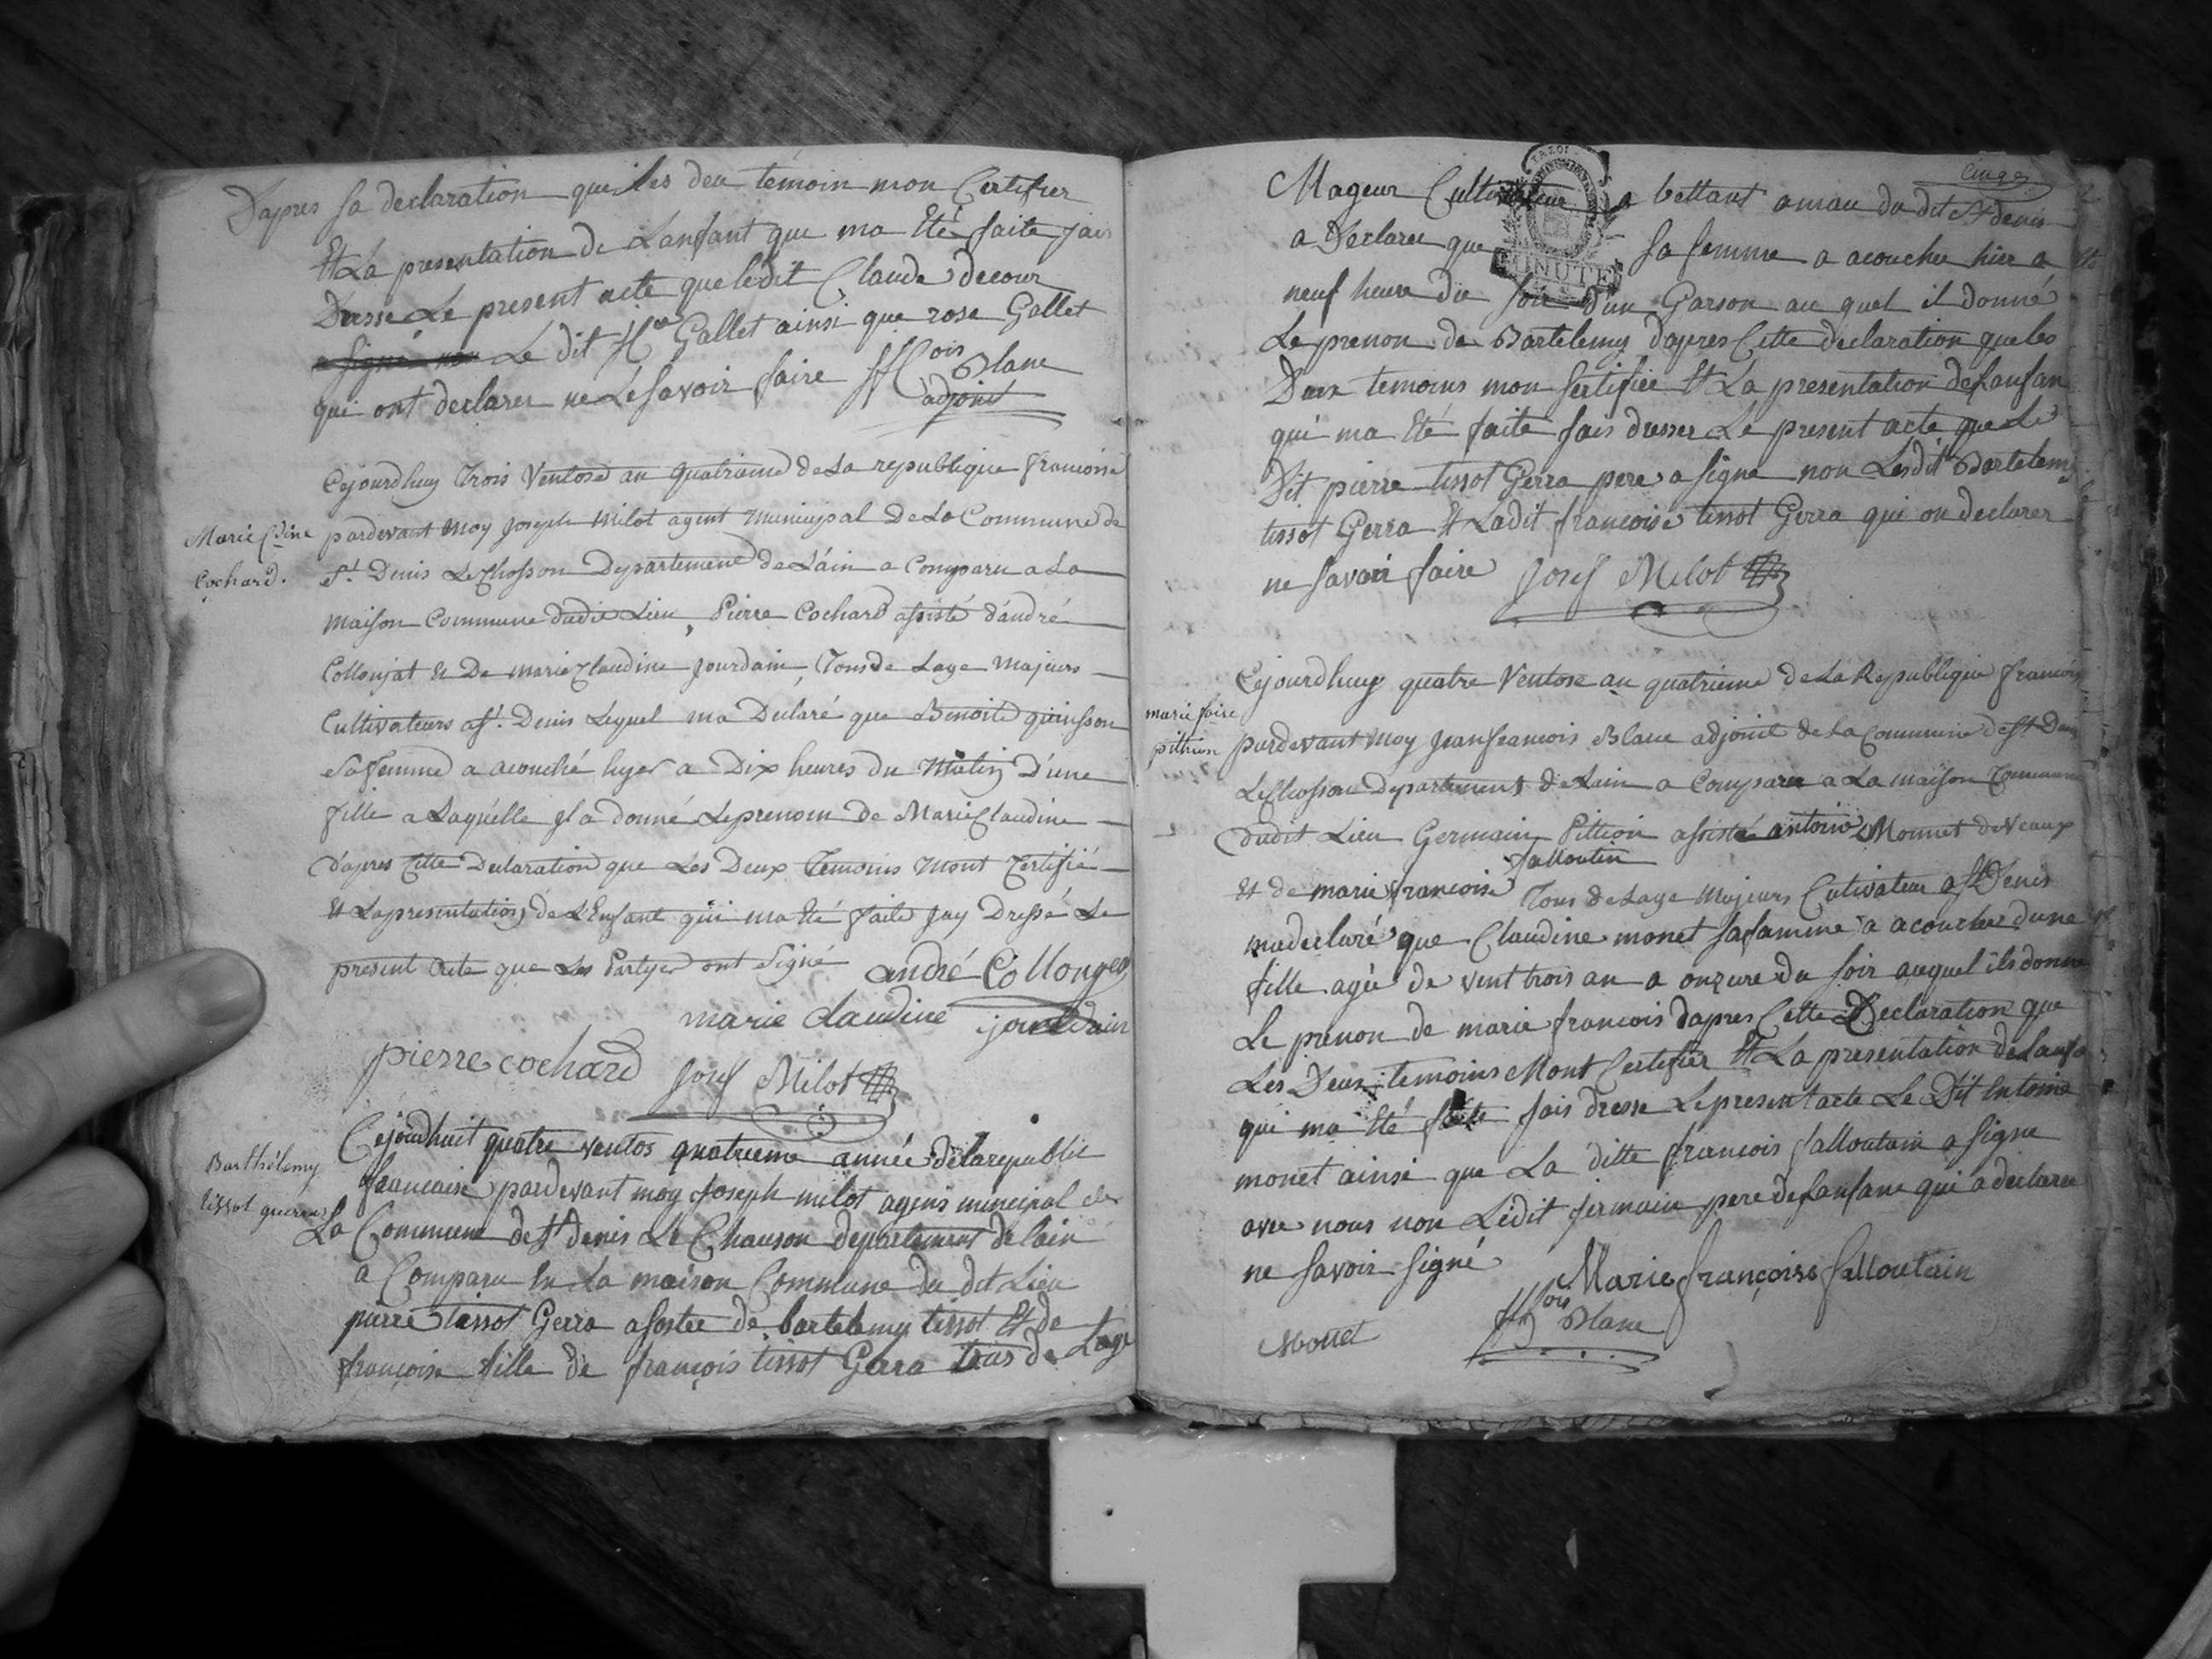 D'apres sa declaration que les deu témoin mon Certifier
Et La presentation de Lanfant que ma Eté faite jais
Dresse Le present acte que ledit Claude decour
Le dit Gallet ainsi que rose Gallet
qui ont declarer ne Le savoir faire
ois Blanc
adjoint
Marie Cdine
Cochard.
Cejourdhuy Trois Ventose an quatrieme de La republique francoise
pardevant Moy joseph Milot agent Municipal De La Commune de
St. Denis Le Chosson Departement de L'ain a Comparu a La
Maison Commune dudit Lieu, Pierre Cochard assisté d'andré
Collonjat Et De marie Claudine Jourdain, Tous de Lage Majeurs
Cultivateurs a St. Denis Lequel ma Declaré que Benoite quinsson
Sa femme a acouché hyer a Dix heures du Matin D'une
fille a Laquelle Jl a donné Le prenom de Marie Claudine
d'apres Cette Declaration que Les Deux Temoins Mont Certifié
Et La presentation de L'Enfant qui ma Eté faite Jay Dressé Le
present Acte que Les Partyes ont Signé andré Collonges
marie claudine jourdain
pierre cochard Josef Milot
Barthélemy
tissot guerraz
Cejourdhuit quatre ventos quatrieme année de la republic
francaise pardevant moy Joseph milot agens municipal de
La Commune de St denis Le Chauson departement de lain
a Comparu En La maison Commune du dit Lieu
pierre tissot Gerra asostee de bartelemy tissot Et de
françoise fille de françois tissot Gerra tous de Lage
Cinq
Mageur Cultivateur a bettant amau du dit St denis
a Declaree que sa femme a acouchee hier a
neuf heure du soir d'un Garson au quel il donné
Le prenon de Bartelemy d'apres Cette declaration que les
Deux temoins mon sertifiee Et La presentation de Lanfan
qui ma Eté faite fais dresser Le present acte que Le
Dit pierre tissot Gerra pere a signe non Lesdit Bartelemy
tissot Gerra Et Ladit francoise tissot Gerra qui on declarer
ne savoir faire Josef Milot
marie foise
pithion
Cejourdhuy quatre Ventose an quatrieme de La Republique francoise
pardevant Moy Jean francois Blanc adjoint de La Commune de St Denis
Le Chosson Departement de Lain a Comparu a La maison Commune
dudit Lieu Germain Pittion assisté antoine Monnet de Veaux
falloutin
Et de marie francoise Tous de Lage Majeurs Cutivateur a St Denis
ma declaré que Claudine monet sa famme a acoucher dune
fille agée de vent trois an a onzure du soir auquel ils donne
Le prenon de marie francois d'apres Cette Declaration que
Les Deux temoins Mont Certifier Et La presentation de Lanfa
qui ma Eté faite fais dresse Le present acte Le Dit Entoine
monet ainsi que La ditte francois falloutain a signe
avec nous non Ledit Jermain pere de Lanfane qui a declaree
ne savoir signé Marie françoise falloutain
ois Blanc
Monet
MINUTE